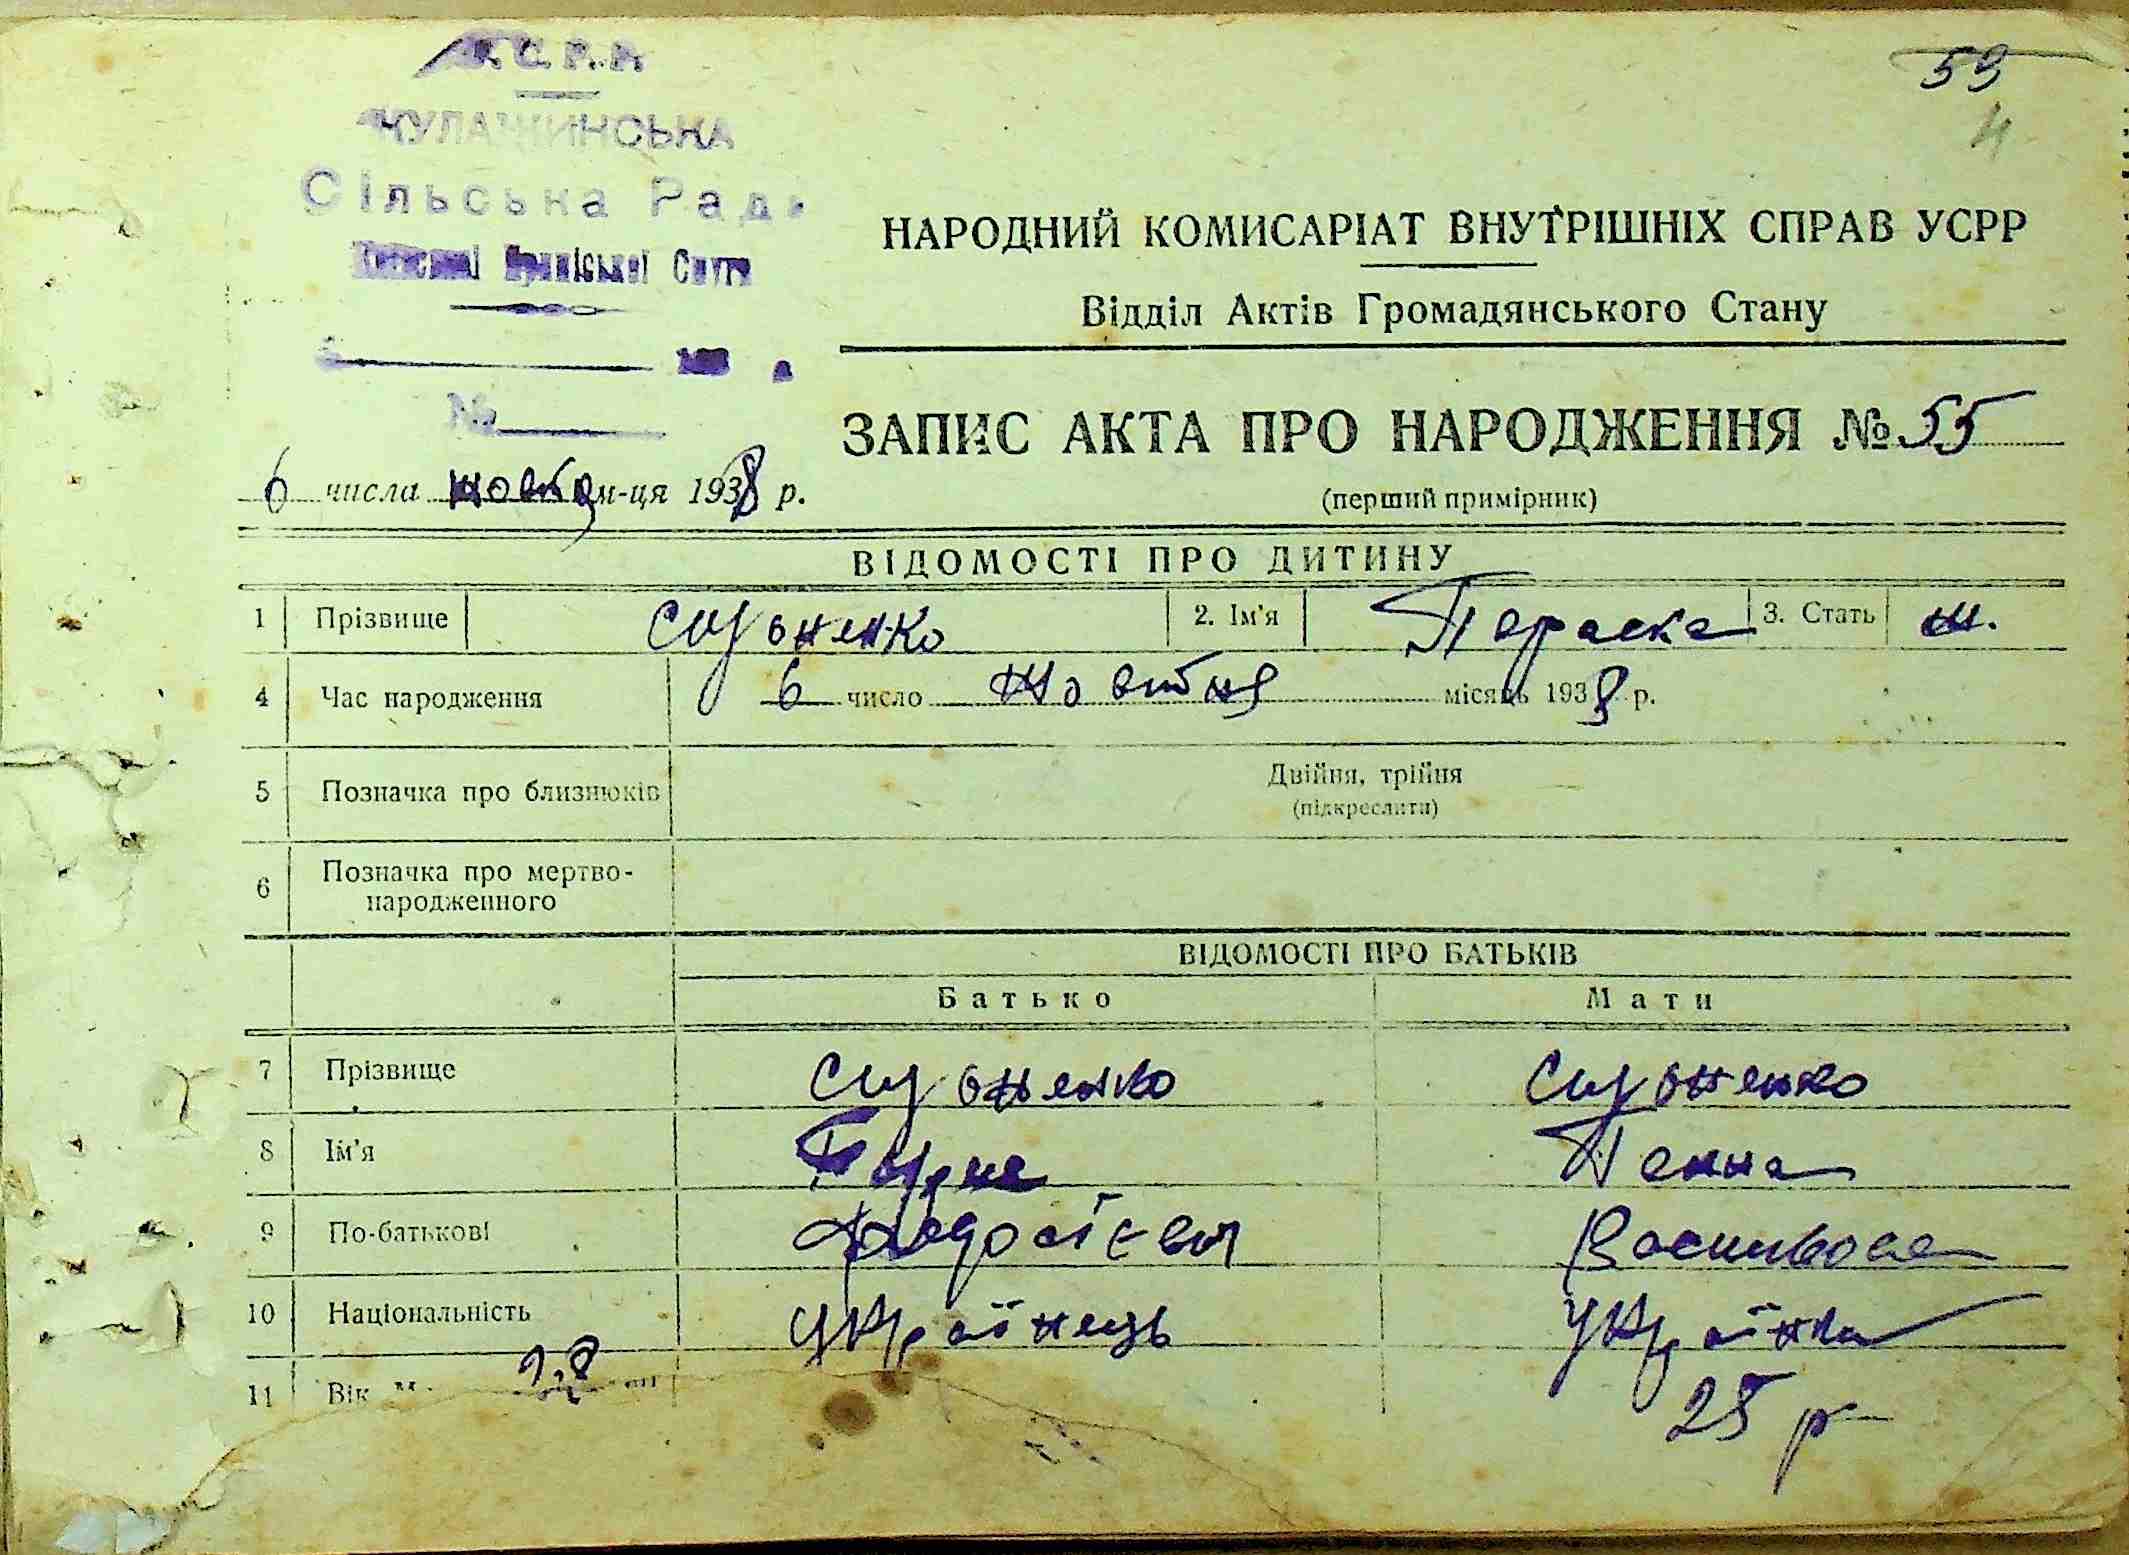 У.С.Р.Р.
КУЛАЖИНСЬКА
Сільська Рада
59
4
НАРОДНИЙ КОМИСАРІАТ ВНУТРІШНІХ СПРАВ УСРР
Відділ Актів Громадянського Стану
№
ЗАПИС АКТА ПРО НАРОДЖЕННЯ № 55
(перший примірник)
6 числа жовтня м-ця 1938 р.
ВІДОМОСТІ ПРО ДИТИНУ
1 Прізвище 2. Ім'я Параска 3. Стать ж.
4 Час народження 6 число жовтня місяць 1938 р.
5 Позначка про близнюків Двійня, трійня
(підкреслити)
6 Позначка про мертво-
народженного
ВІДОМОСТІ ПРО БАТЬКІВ
Батько Мати
7 Прізвище
8 Ім'я Ганна
9 По-батькові Федосієвич Василівна
10 Національність українець українка
11 Вік 25 р